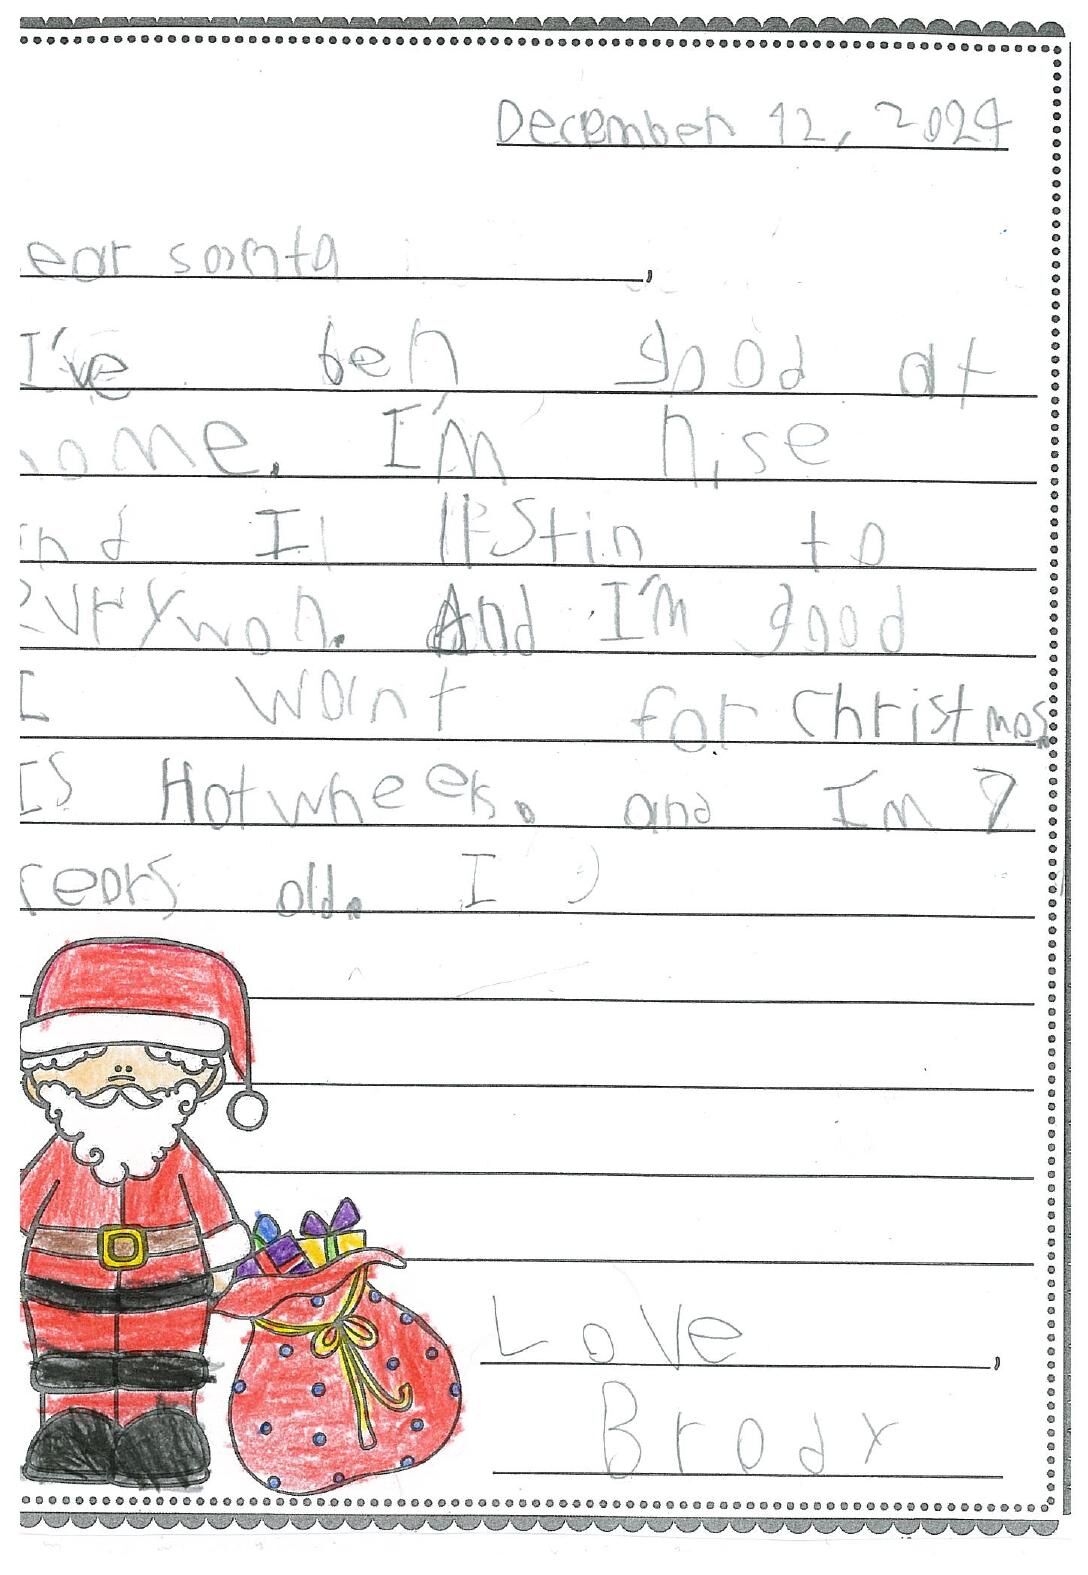 December 12, 2024
ear santa ,
I've ben good at
home. I'm nise
and I lestin to
evrywon. And I'm good
I waint for Christmas.
IS Hotwheels. and Im 7
years old. I
Love ,
Brody